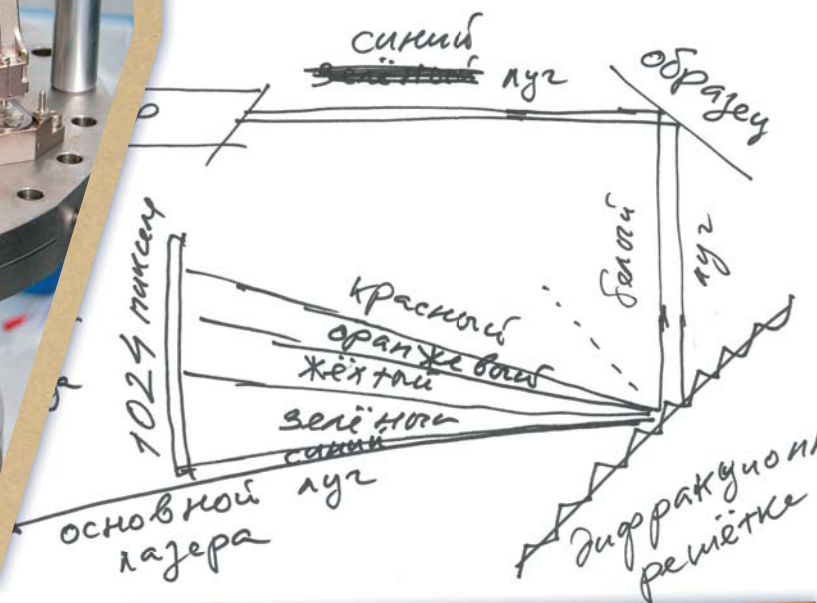 синий
зелёный луч
образец
белый
луч
1024 пикселя
красный
оранжевый
жёлтый
зелёный
синий
основной луч
лазера
дифракцион
решётка